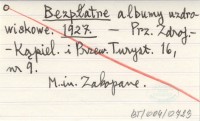 Bezpłatne albumy uzdro-
wiskowe. 1927. — Prz. Zdroj.-
-Kąpiel. i Przew. Turyst. 16,
nr 9.
M.in. Zakopane.